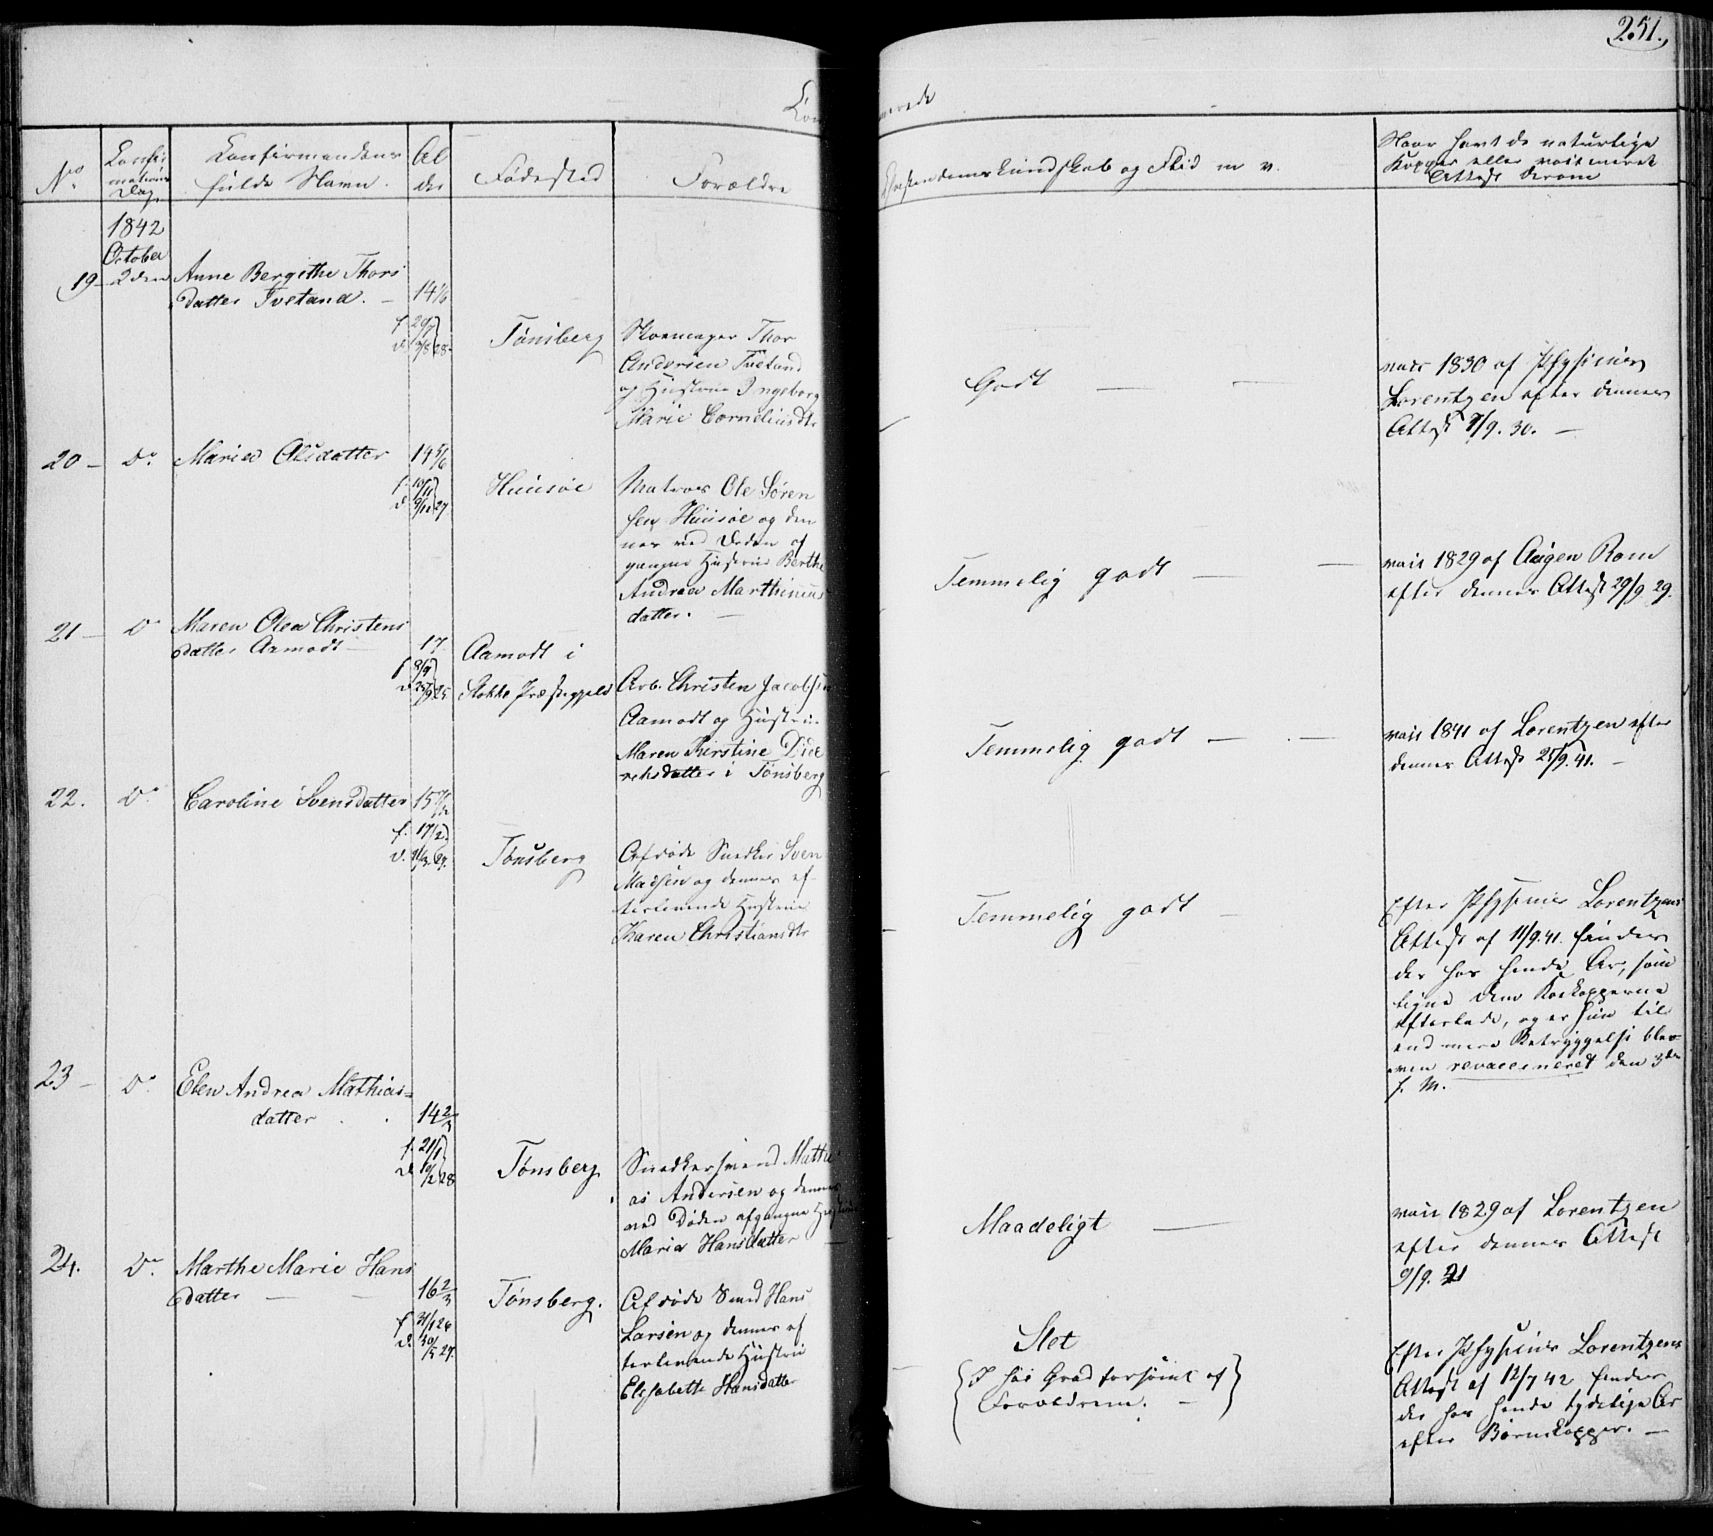 251.
No
Confir-
mations
Dag
Confirmandens
fulde Navn.
Al
der
Fødested
Forældre
Christendomskundskab og Flid m v.
Naar havt de naturlige
Kopper eller vaccineret
Attest derom
1842
October
19 2den Anne Bergithe Thors
datter Tvetand. — 14 1/6
Tønsberg
Skomager Thor
Andersen Tvetand
og Hustrue Ingeborg
Marie Corneliusdtr
Godt —
vacc 1830 af Physicus
Lorentzen efter dennes
Attest 7/9. 30. —
20 — Do Maria Olsdatter 14 5/6
Huusøe
Matros Ole Søren
sen Huusøe og den
nes ved Døden af
gangne Hustrue Berthe
Andrea Marthinus
datter. —
Temmelig godt —
vacc 1829 af Augen Ram
efter dennes Attest 29/9. 29.
21 — Do Maren Olea Christens
datter Aamodt — 17.
Aamodt i
Stokke Præstegjeld
Arb. Christen Jacobsen
Aamodt og Hustrue
Maren Kirstine Died
richsdatter i Tønsberg
Temmelig godt — . —
vacc 1841 af Lorentzen efter
dennes Attest 25/9. 41. —
22. Do Caroline Svensdatter 15 7/12
f. 17/2
Tønsberg
Afdøde Snedker Sven
Madsen og dennes ef-
terlevende Hustrue
Karen Christiansdtr
Temmelig godt —
Efter Physicus Lorentzens
Attest af 11/9. 41. findes
der hos hende Ar, som
ligne dem Kokopperne
efterlade, og er hun til
end mere Betryggelse ble-
ven revaccineret den 3die
s. M.
23 — Do Elen Andrea Mathias-
datter . . 14 2/3
f. 21/1
d. 10/2 28
Tønsberg
Snedkersvend Mathi
as Andersen og dennes
ved Døden afgangne Hustrue
Maria Hansdatter —
Maadeligt —
vacc 1829 af Lorentzen
efter dennes Attest
9/9. 41
24. Do Marthe Marie Hans
datter — — 16 2/3
Tønsberg.
Afdøde Smed Hans
Larsen og dennes ef
terlevende Hustrue
Elisabeth Hansdatter
Slet
{ I høi Grad forsømt af }
Forældrene. —
Efter Physicus Lorentzens
Attest af 12/7 42 findes
der hos hende tydelige Ar
efter Børnekopper. —